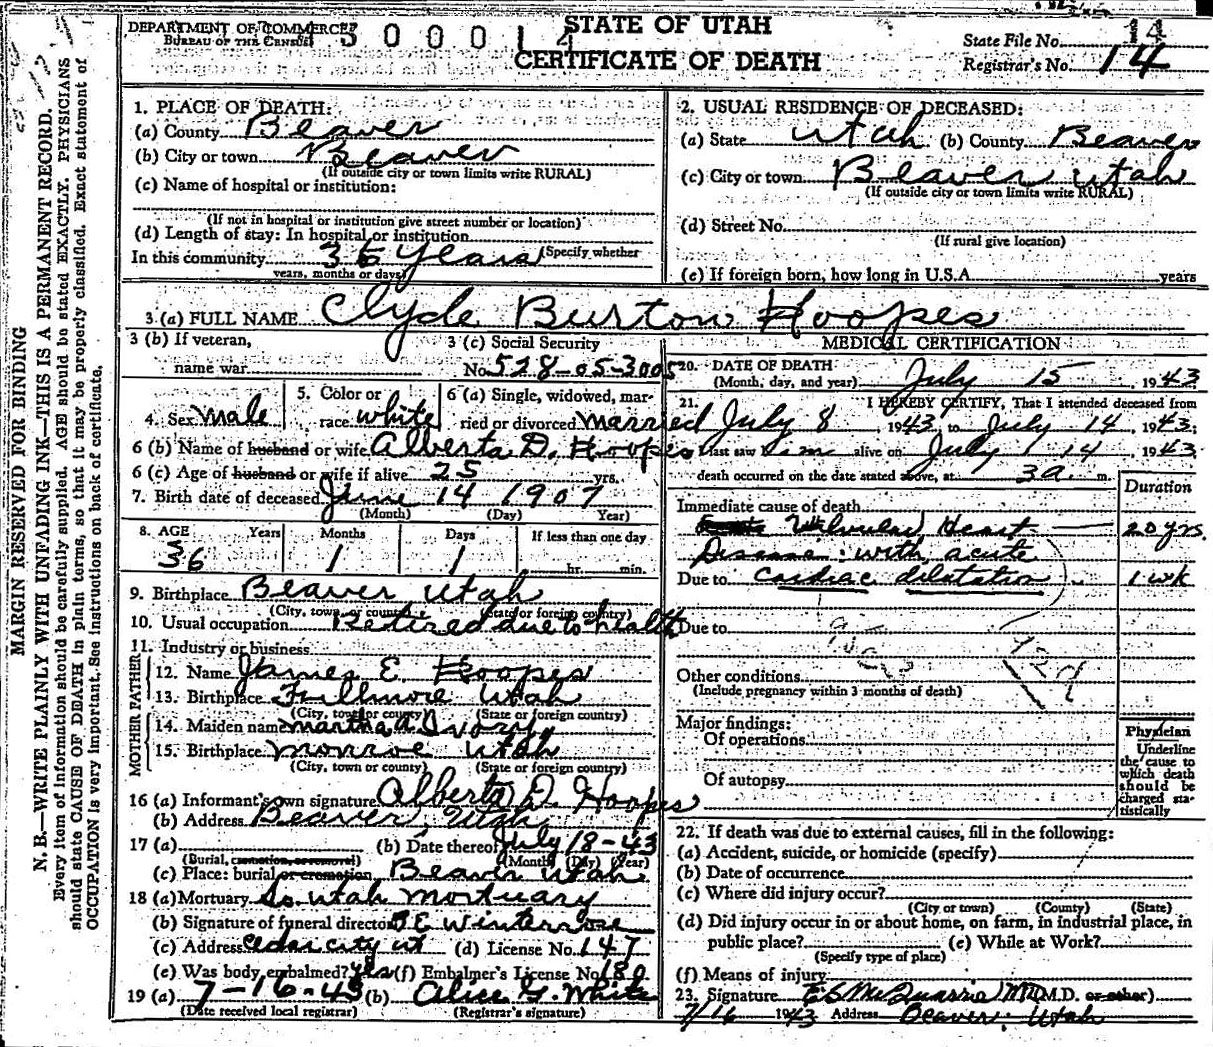 DEPARTMENT OF COMMERCE
BUREAU OF THE CENSUS
300014
STATE OF UTAH
CERTIFICATE OF DEATH
State File No. 14
Registrar's No. 14
MARGIN RESERVED FOR BINDING
N. B.—WRITE PLAINLY WITH UNFADING INK—THIS IS A PERMANENT RECORD.
Every item of information should be carefully supplied. AGE should be stated EXACTLY. PHYSICIANS
should state CAUSE OF DEATH in plain terms, so that it may be properly classified. Exact statement of
OCCUPATION is very important. See instructions on back of certificate.
1. PLACE OF DEATH:
(a) County Beaver
(b) City or town Beaver
(If outside city or town limits write RURAL)
(c) Name of hospital or institution:
(If not in hospital or institution give street number or location)
(d) Length of stay: In hospital or institution
(Specify whether
In this community 36 years
years, months or days)
2. USUAL RESIDENCE OF DECEASED:
(a) State Utah (b) County Beaver
(c) City or town Beaver Utah
(If outside city or town limits write RURAL)
(d) Street No.
(If rural give location)
(e) If foreign born, how long in U.S.A. years
3 (a) FULL NAME Clyde Burton Hoopes
3 (b) If veteran,
name war
3 (c) Social Security
No. 528-05-3005
4. Sex Male
5. Color or
race white
6 (a) Single, widowed, mar-
ried or divorced Married
6 (b) Name of husband or wife Alberta D. Hoopes
6 (c) Age of husband or wife if alive 25 yrs.
7. Birth date of deceased June 14 1907
(Month) (Day) Year)
8. AGE Years Months Days If less than one day
36 1 1 hr. min.
9. Birthplace Beaver Utah
(City, town or county) (State or foreign country)
10. Usual occupation Retired due to health
11. Industry or business
MOTHER FATHER
12. Name James E Hoopes
13. Birthplace Fillmore Utah
(City, town or county) (State or foreign country)
14. Maiden name Martha A Ivory
15. Birthplace Monroe Utah
(City, town or county) (State or foreign country)
16 (a) Informant's own signature Alberta D. Hoopes
(b) Address Beaver, Utah
17 (a) (b) Date thereof July 18-43
(Burial, cremation, or removal) (Month) (Day) (Year)
(c) Place: burial or cremation Beaver Utah
18 (a) Mortuary So. Utah Mortuary
(b) Signature of funeral director Winterrose
(c) Address Cedar City Ut (d) License No. 147
(e) Was body embalmed? Yes (f) Embalmer's License No. 180
19 (a) 7-16-43 (b) Alice G. White
(Date received local registrar) (Registrar's signature)
MEDICAL CERTIFICATION
20. DATE OF DEATH
(Month, day, and year) July 15, 1943
21. I HEREBY CERTIFY, That I attended deceased from
July 8, 1943 to July 14, 1943;
I last saw him alive on July 14, 1943
death occurred on the date stated above, at 3 a. m.
Duration
Immediate cause of death
Valvular Heart 20 yrs.
Disease: with acute
Due to cardiac dilatation 1 wk
Due to
Other conditions
(Include pregnancy within 3 months of death)
Major findings:
Of operations
Of autopsy
Physician
Underline
the cause to
which death
should be
charged sta-
tistically
22. If death was due to external causes, fill in the following:
(a) Accident, suicide, or homicide (specify)
(b) Date of occurrence
(c) Where did injury occur?
(City or town) (County) (State)
(d) Did injury occur in or about home, on farm, in industrial place, in
public place? (e) While at Work?
(Specify type of place)
(f) Means of injury
23. Signature McQuarrie MD (M.D. or other)
7/16 1943 Address Beaver, Utah